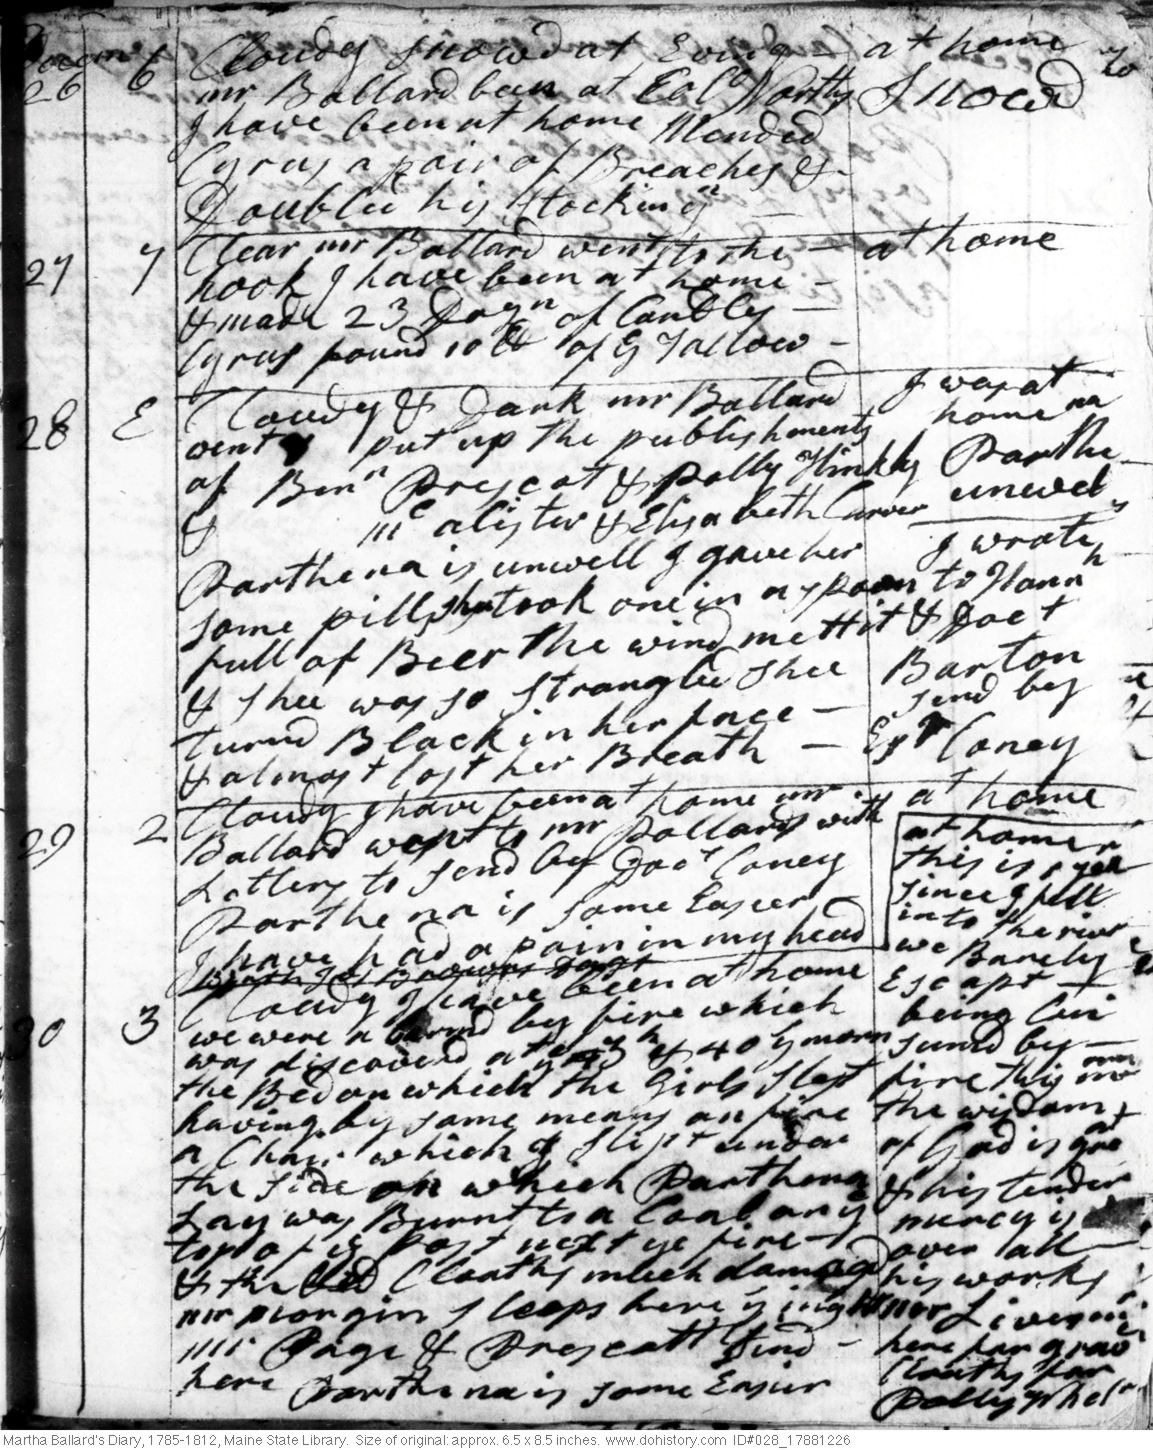 Decemr
26 6 Cloudy Snowd at Evng – at home
mr Ballard been at Col Northy Snowd
I have been at home Mended
Cyrus a pair of Breaches &
Doubled his Stocking
27 7 Clear mr Ballard went to the – at home
hook I have been at home –
& made 23 Dozn of Candls –
Cyrus found 10 lb of Tallow –
28 E Cloudy & Dark mr Ballard
went put up the publishments
of Benn Prescot & Polly Hinkly
& mc alister & Elisabeth Carver
Parthena is unwell I gave her
some pills shee took one in a spoon
full of Beer the wind mett it
& shee was so strangled shee
turnd Black in her face –
& almost lost her Breath –
I was at
home
Parthena
unwel
I wrote
to Hannh
& Doct
Barton
send by
Esqr Coney
29 2 Cloudy I have been at home mr
Ballard went to mr Pollards with
Letters to send by Doct Coney
Parthena is some Easier
I have had a pain in my head
at home
30 3 Cloudy I have been at home
we were alarmd by fire which
was discovered at & 40 morn
the Bed on which the Girls slept
having by some means on fire
a Chair which I slipt under
the side on which Parthena
Lay was Burnt to a Coal
top of post next ye fire –
& the Bed Cloaths much damagd
mr morgin sleeps here ys night
mr Page & Prescott dind –
here Parthena is some Easier
at home
this is 1 year
since I fell
into the river
we Barely
Escapt
being Con
sumd by
fire this morn
the wisdom
of God is great
& his tender
mercy is
over all
his works
mr Livermor
here for grav
Cloaths for
Polly
Martha Ballard's Diary, 1785-1812, Maine State Library. Size of original: approx. 6.5 x 8.5 inches. www.dohistory.com ID#028_17881226